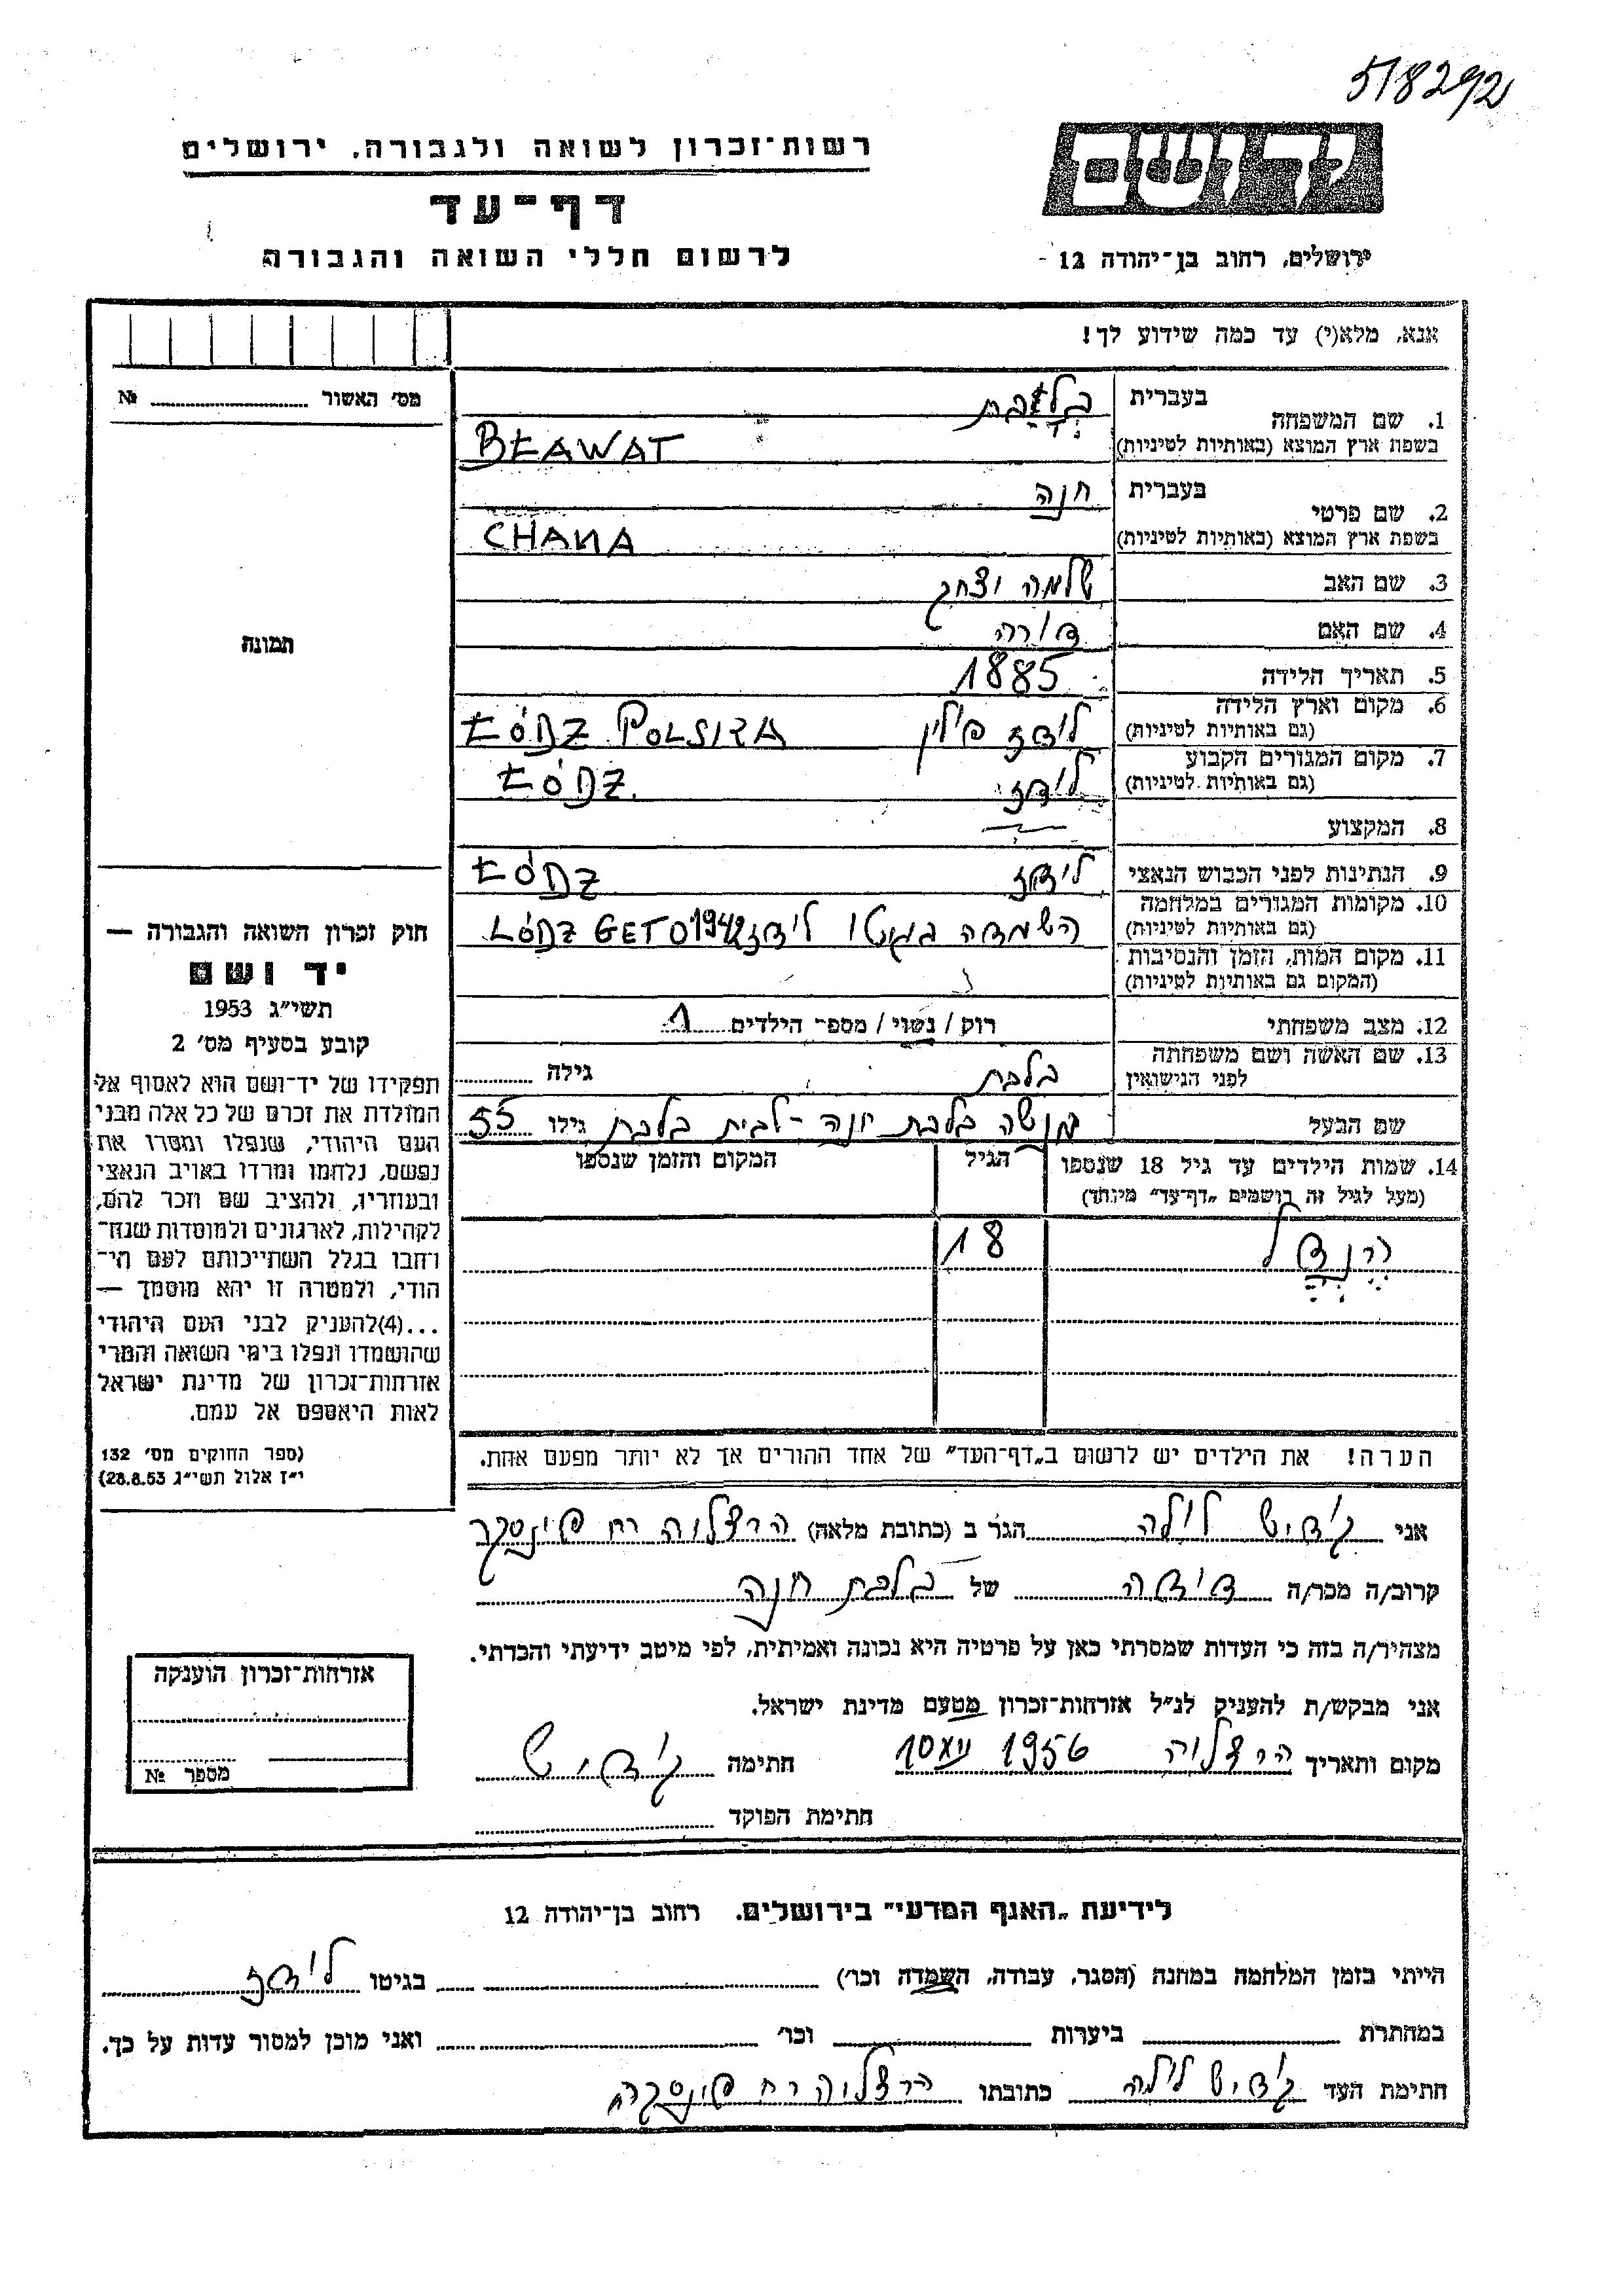 518292
יד ושם
רשות־זכרון לשואה ולגבורה, ירושלים
דף־עד
לרשום חללי השואה והגבורה
ירושלים, רחוב בן־יהודה 12
אנא, מלא(י) עד כמה שידוע לך!
מס׳ האשור № 
בעברית
1. שם המשפחה
בשפת ארץ המוצא (באותיות לטיניות) BŁAWAT
בעברית חנה
2. שם פרטי
בשפת ארץ המוצא (באותיות לטיניות) CHANA
3. שם האב שלמה יצחק
4. שם האם דורה
5. תאריך הלידה 1885
6. מקום וארץ הלידה
(גם באותיות לטיניות) לודז פולין ŁÓDZ POLSKA
7. מקום המגורים הקבוע
(גם באותיות לטיניות) לודז ŁÓDZ
8. המקצוע
9. הנתינות לפני הכבוש הנאצי לודז ŁÓDZ
10. מקומות המגורים במלחמה
(גם באותיות לטיניות) השמדה בגיטו לודז 1942 LÓDZ GETO
11. מקום המות, הזמן והנסיבות
(המקום גם באותיות לטיניות)
12. מצב משפחתי רוק / נשוי / מספר הילדים 1
13. שם האשה ושם משפחתה
לפני הנישואין בלבת גילה
שם הבעל מנשה בלבת יונה - לבית בלבת גילו 55
14. שמות הילדים עד גיל 18 שנספו הגיל המקום והזמן שנספו
(מעל לגיל זה רושמים „דף־עד” מיוחד)
18
הערה! את הילדים יש לרשום ב„דף־העד” של אחד ההורים אך לא יותר מפעם אחת.
תמונה
חוק זכרון השואה והגבורה —
יד ושם
תשי״ג 1953
קובע בסעיף מס׳ 2
תפקידו של יד־ושם הוא לאסוף אל
המולדת את זכרם של כל אלה מבני
העם היהודי, שנפלו ומסרו את
נפשם, נלחמו ומרדו באויב הנאצי
ובעוזריו, ולהציב שם וזכר להם,
לקהילות, לארגונים ולמוסדות שנח־
רחבו בגלל השתייכותם לעם הי־
הודי, ולמטרה זו יהא מוסמך —
...(4)להעניק לבני העם היהודי
שהושמדו ונפלו בימי השואה והמרי
אזרחות־זכרון של מדינת ישראל
לאות היאספם אל עמם.
(ספר החוקים מס׳ 132
י״ז אלול תשי״ג 28.8.53)
אני לולה הגר ב (כתובת מלאה) הרצליה רח פינסקר
קרוב/ה מכר/ה דודה של בלבת חנה
מצהיר/ה בזה כי העדות שמסרתי כאן על פרטיה היא נכונה ואמיתית, לפי מיטב ידיעתי והכרתי.
אני מבקש/ת להעניק לנ״ל אזרחות־זכרון מטעם מדינת ישראל.
מקום ותאריך הרצליה 1956 חתימה
חתימת הפוקד
אזרחות־זכרון הוענקה
מספר №
לידיעת „האגף המדעי” בירושלים. רחוב בן־יהודה 12
הייתי בזמן המלחמה במחנה (הסגר, עבודה, השמדה וכו׳) בגיטו לודז
במחתרת ביערות וכו׳ ואני מוכן למסור עדות על כך.
חתימת העד לולה כתובתו הרצליה רח פינסקר